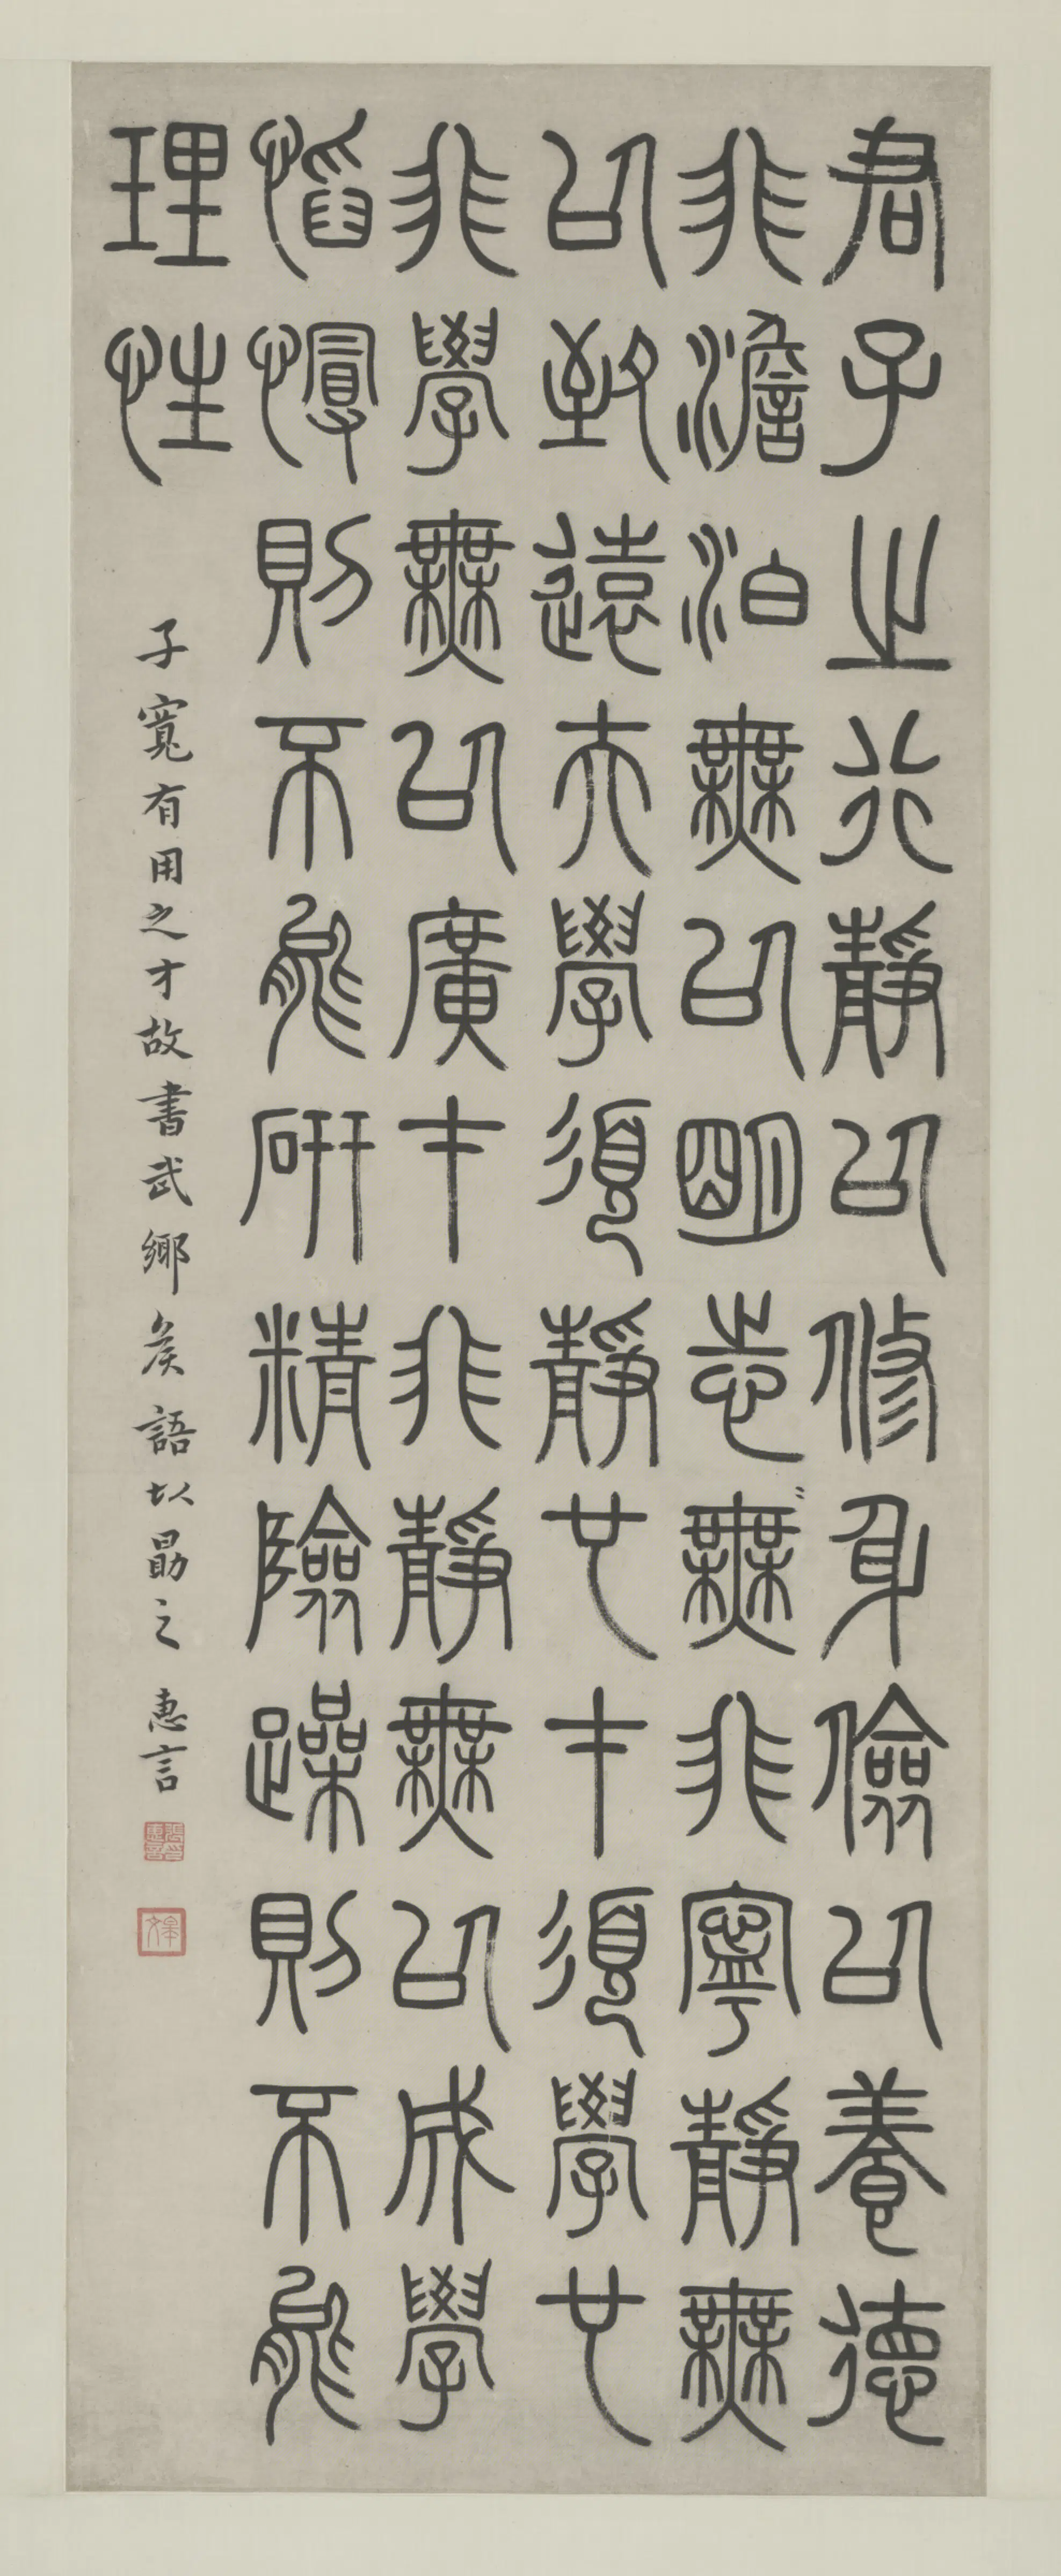 君子之行靜以修身儉以養德
非澹泊無以明志無非寧靜無
以致遠夫學須靜也才須學也
非學無以廣才非靜無以成學
慆慢則不能研精險躁則不能
理性
子寬有用之才故書武鄉矦語以勗之 惠言
張惠言印
皋文